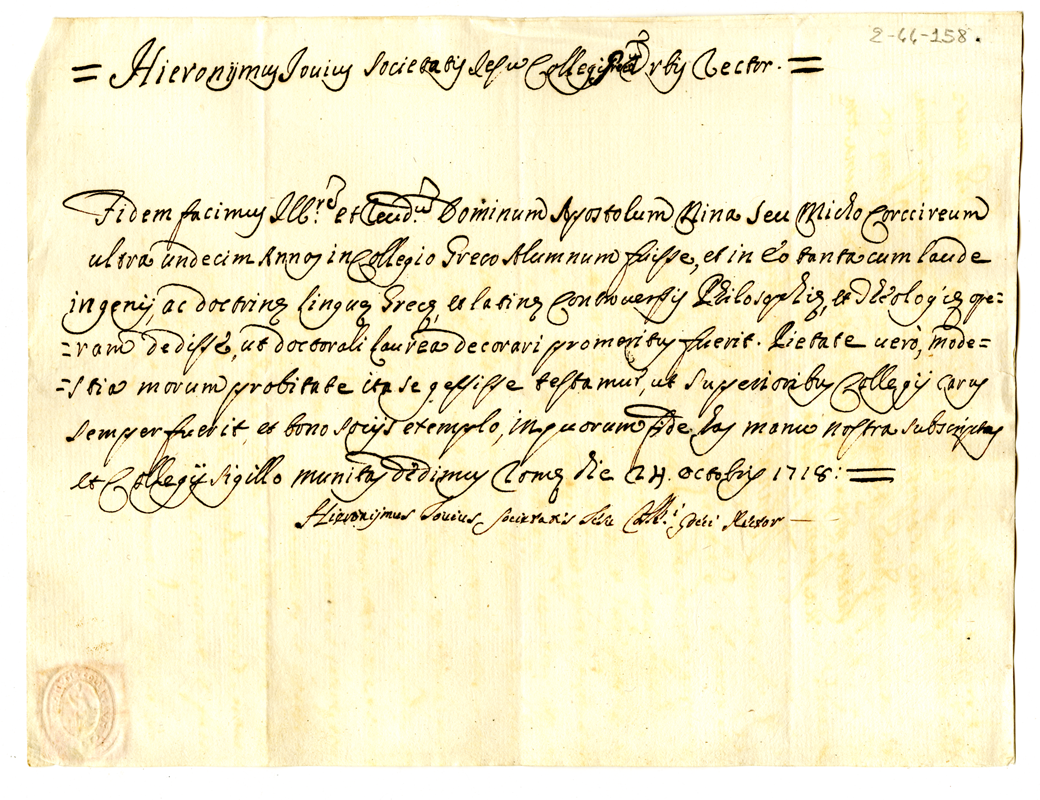 2-44-158.
= Hieronijmus Jovius Societatis Jesu Collegij Urbis Rector. =
Fidem facimus Ill.re et Reud.m Dominum Apostolum Mina seu Micho Corcireum
ultra undecim Annos in Collegio Greco Alumnum fuisse, et in eo tanta cum laude
ingenij, ac doctrinę linguę Grecę, et latinę Controversijs Philosophię, et Theologię ope=
=ram dedisse, ut doctorali laurea decorari promeritus fuerit. Pietate verò, mode=
=stia morum probitate ita se gessisse testamur, ut Superioribus Collegij carus
semper fuerit, et bono socijs exemplo, in quorum fide has manu nostra subscriptas
et Collegij sigillo munitas dedimus Romę die 24. Octobris 1718: =
Hieronijmus Jovius Societatis Jesu Coll.i dicti Rector